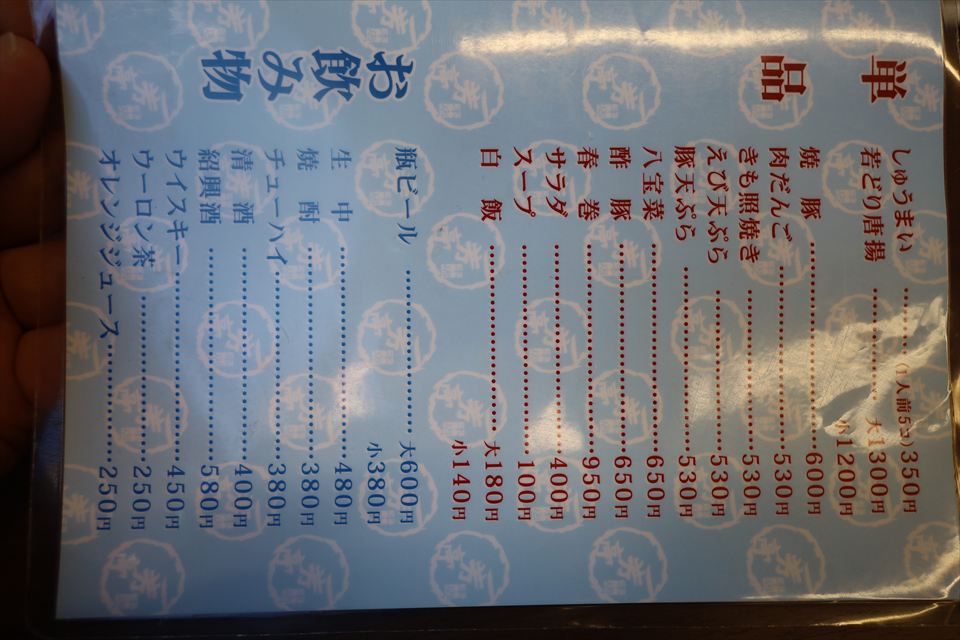 単品
しゅうまい……(1人前5コ)350円
若どり唐揚……大1300円
小1200円
焼豚……600円
肉だんご……530円
きも照焼き……530円
えび天ぷら……530円
豚天ぷら……530円
八宝菜……650円
酢豚……650円
春巻……950円
サラダ……400円
スープ……100円
白飯……大180円
小140円
お飲み物
瓶ビール……大600円
小380円
生中……480円
焼酎……380円
チューハイ……380円
清酒……400円
紹興酒……580円
ウィスキー……450円
ウーロン茶……250円
オレンジジュース……250円